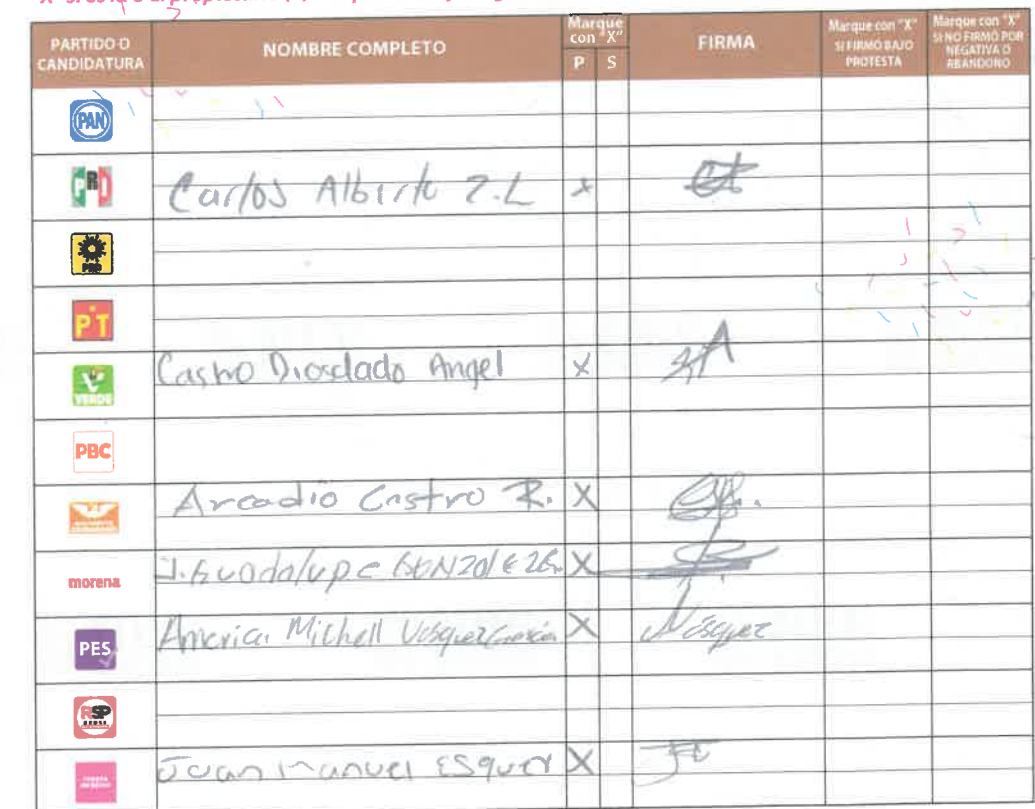 PARTIDO O CANDIDATURA
NOMBRE COMPLETO
Marque con "X"
P S
FIRMA
Marque con "X" SI FIRMÓ BAJO PROTESTA
Marque con "X" SI NO FIRMÓ POR NEGATIVA O ABANDONO
PAN
PRI Carlos Alberto Z.L X
PRD
PT
VERDE Castro Diosdado Angel X
PBC
Arcadio Castro R. X
morena J. Guadalupe X
PES America Michell Vásquez García X Vásquez
RSP
Juan Manuel Esquer X